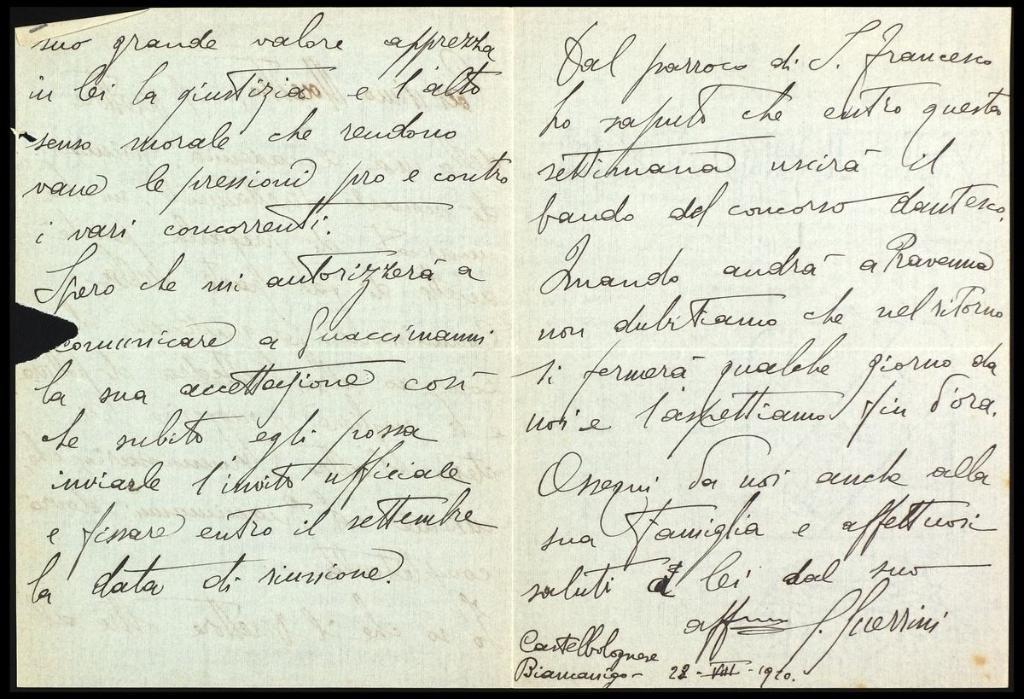 suo grande valore apprezza
in lei la giustizia e l'alto
senso morale che rendono
vane le pressioni pro e contro
i vari concorrenti.
Spero che mi autorizzerà a
comunicare a Guaccimanni
la sua accettazione così
che subito egli possa
inviarle l'invito ufficiale
e fissare entro il settembre
la data di riunione.
Dal parroco di S. Francesco
ho saputo che entro questa
settimana uscirà il
bando del concorso dantesco.
Quando andrà a Ravenna
non dubitiamo che nel ritorno
si fermerà qualche giorno da
noi e l'aspettiamo fin d'ora.
Ossequi da noi anche alla
sua Famiglia e affettuosi
saluti a lei dal suo
aff.mo G. Guerrini
Castelbolognese
Biancanigo - 22 - VIII - 1920.